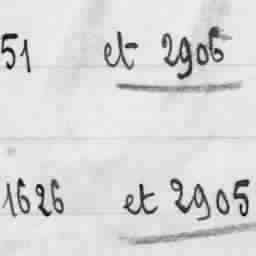 51 et 2905
1626 et 2905